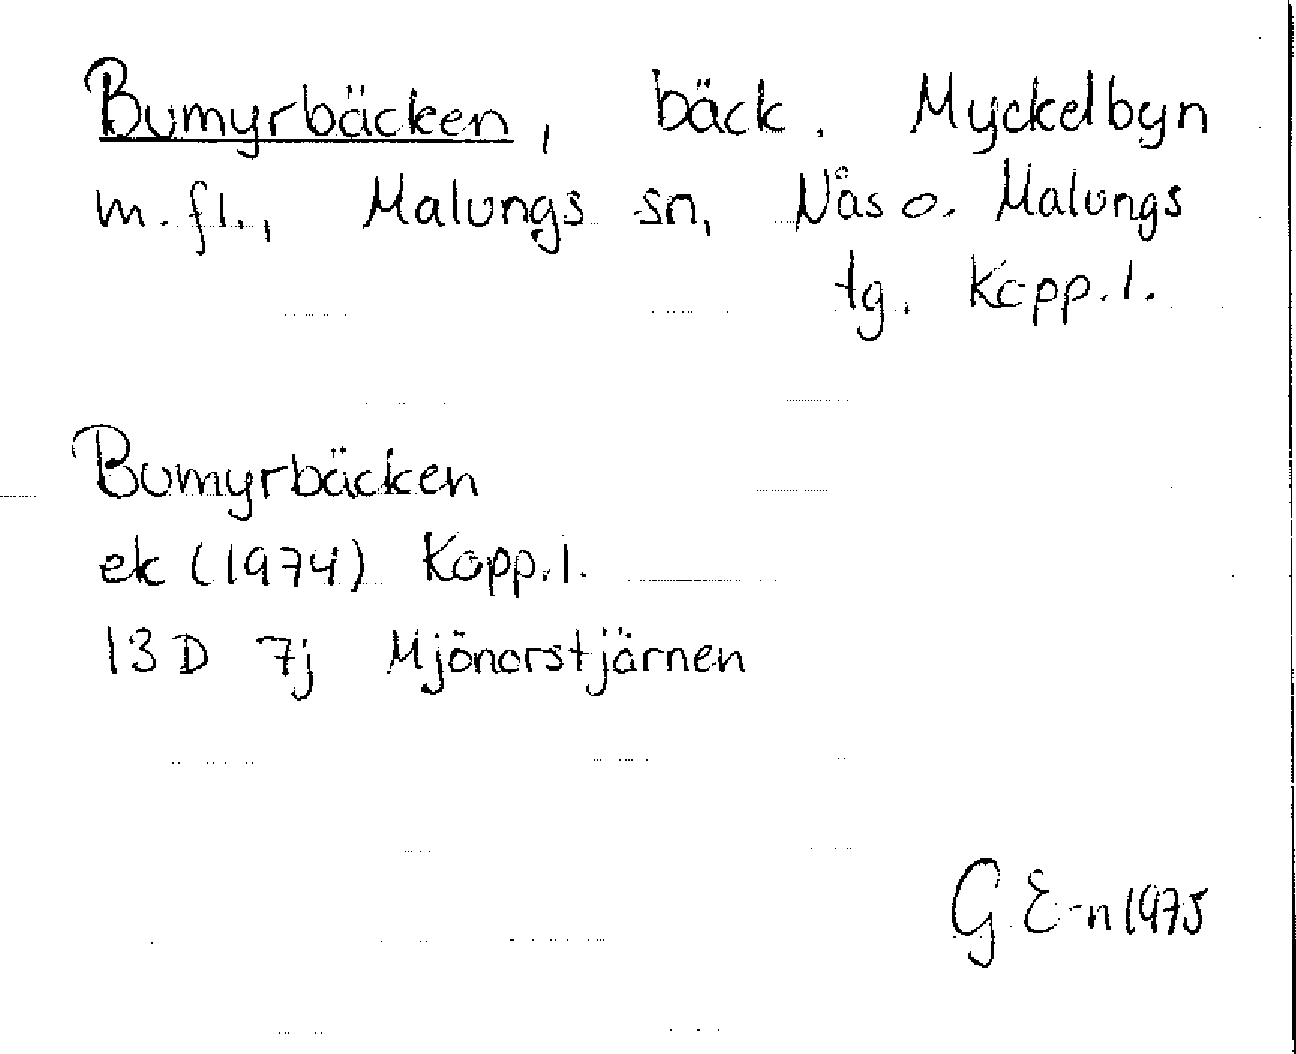 Bumyrbäcken, bäck. Myckelbyn
m.fl., Malungs sn, Nås o. Malungs
tg. Kopp.l.
Bumyrbäcken
ek (1974) Kopp.l.
13D 7j Mjönorstjärnen
G.E-n 1975